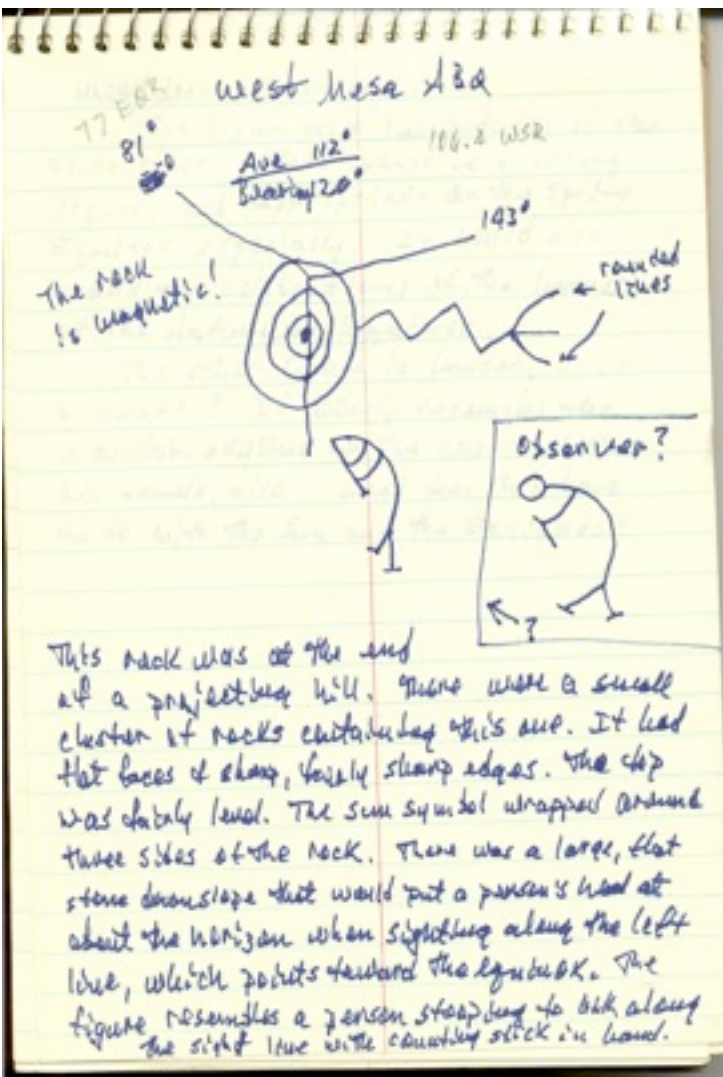 West Mesa ABQ
77 EQR
81°
Ave 112°
Bearing 120°
106.2 WSR
143°
The rock
is magnetic!
rounded
lines
Observer?
?
This rock was at the end
of a projecting hill. There were a small
cluster of rocks containing this one. It had
flat faces & sharp, fairly sharp edges. The top
was fairly level. The sun symbol wrapped around
three sides of the rock. There was a large, flat
stone downslope that would put a person's head at
about the horizon when sighting along the left
line, which points toward the equinox. The
figure resembles a person stooping to look along
the sight line with counting stick in hand.